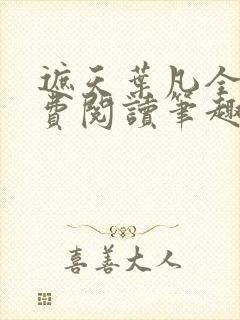 遮天葉凡全
費閱讀筆趣
喜善大人